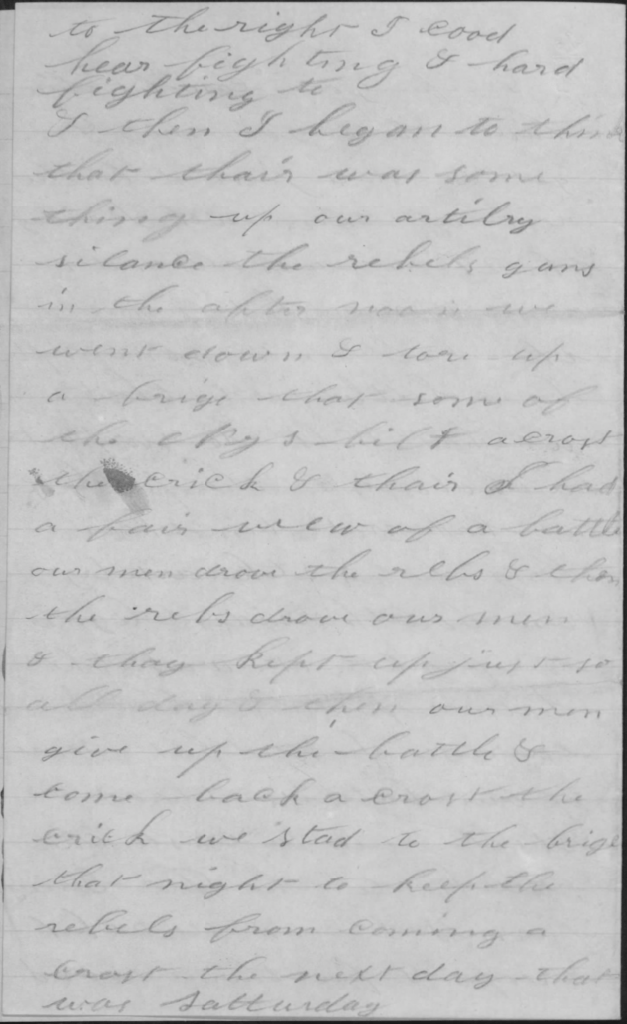 to the right I cood
hear fighting & hard
fighting to
& then I began to think
that thair was some
thing up our artilry
silance the rebels guns
in the after noon we
went down & tore up
a brige that some of
the bilt acrost
the crick & thair I had
a fair view of a battle
our men drove the rebs & then
the rebs drove our men
& thay kept up just so
all day & then our men
give up the battle &
come back a crost the
crick we stad to the brige
that night to keep the
rebels from coming a
crost the next day that
was Satturday